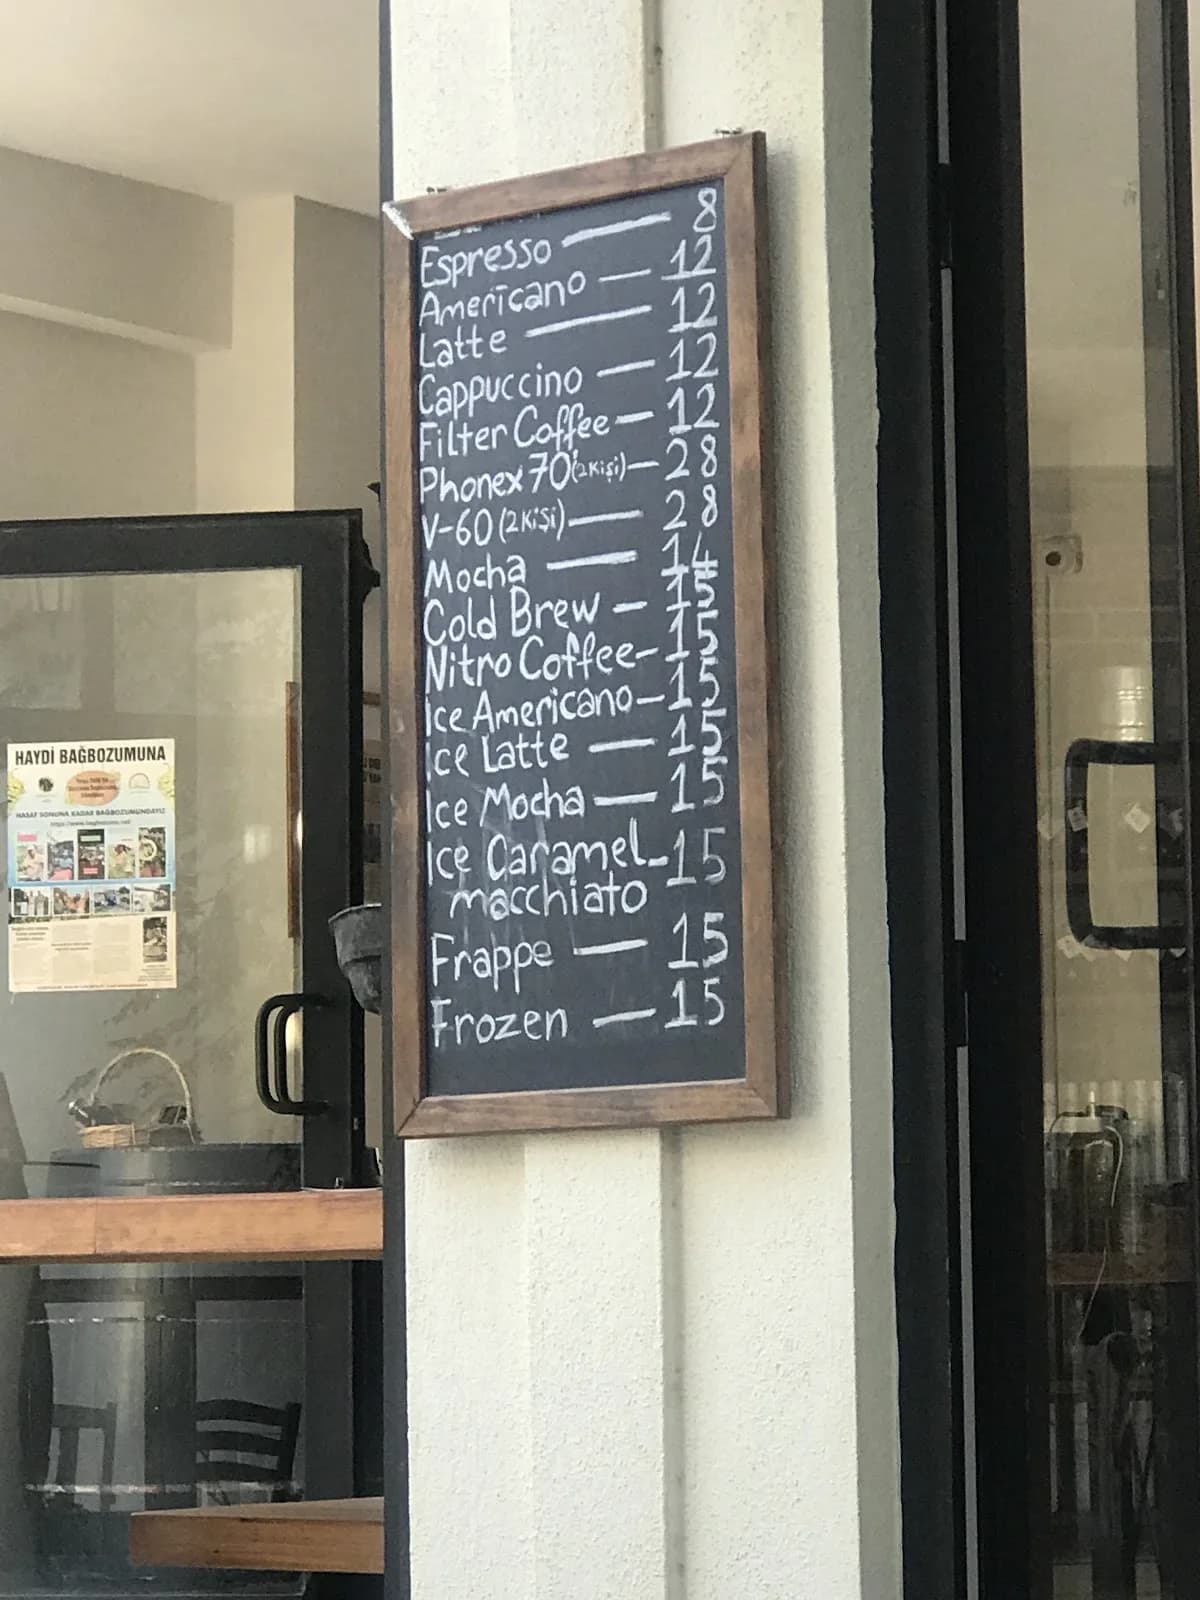 Espresso — 8
Americano — 12
Latte — 12
Cappuccino — 12
Filter Coffee — 12
Phonex 70 (2 Kişi) — 28
V-60 (2 Kişi) — 28
Mocha — 14
Cold Brew — 15
Nitro Coffee — 15
Ice Americano — 15
Ice Latte — 15
Ice Mocha — 15
Ice Caramel — 15
macchiato
Frappe — 15
Frozen — 15
HAYDİ BAĞBOZUMUNA
HASAT SONUNA KADAR BAĞBOZUMUNDAYIZ